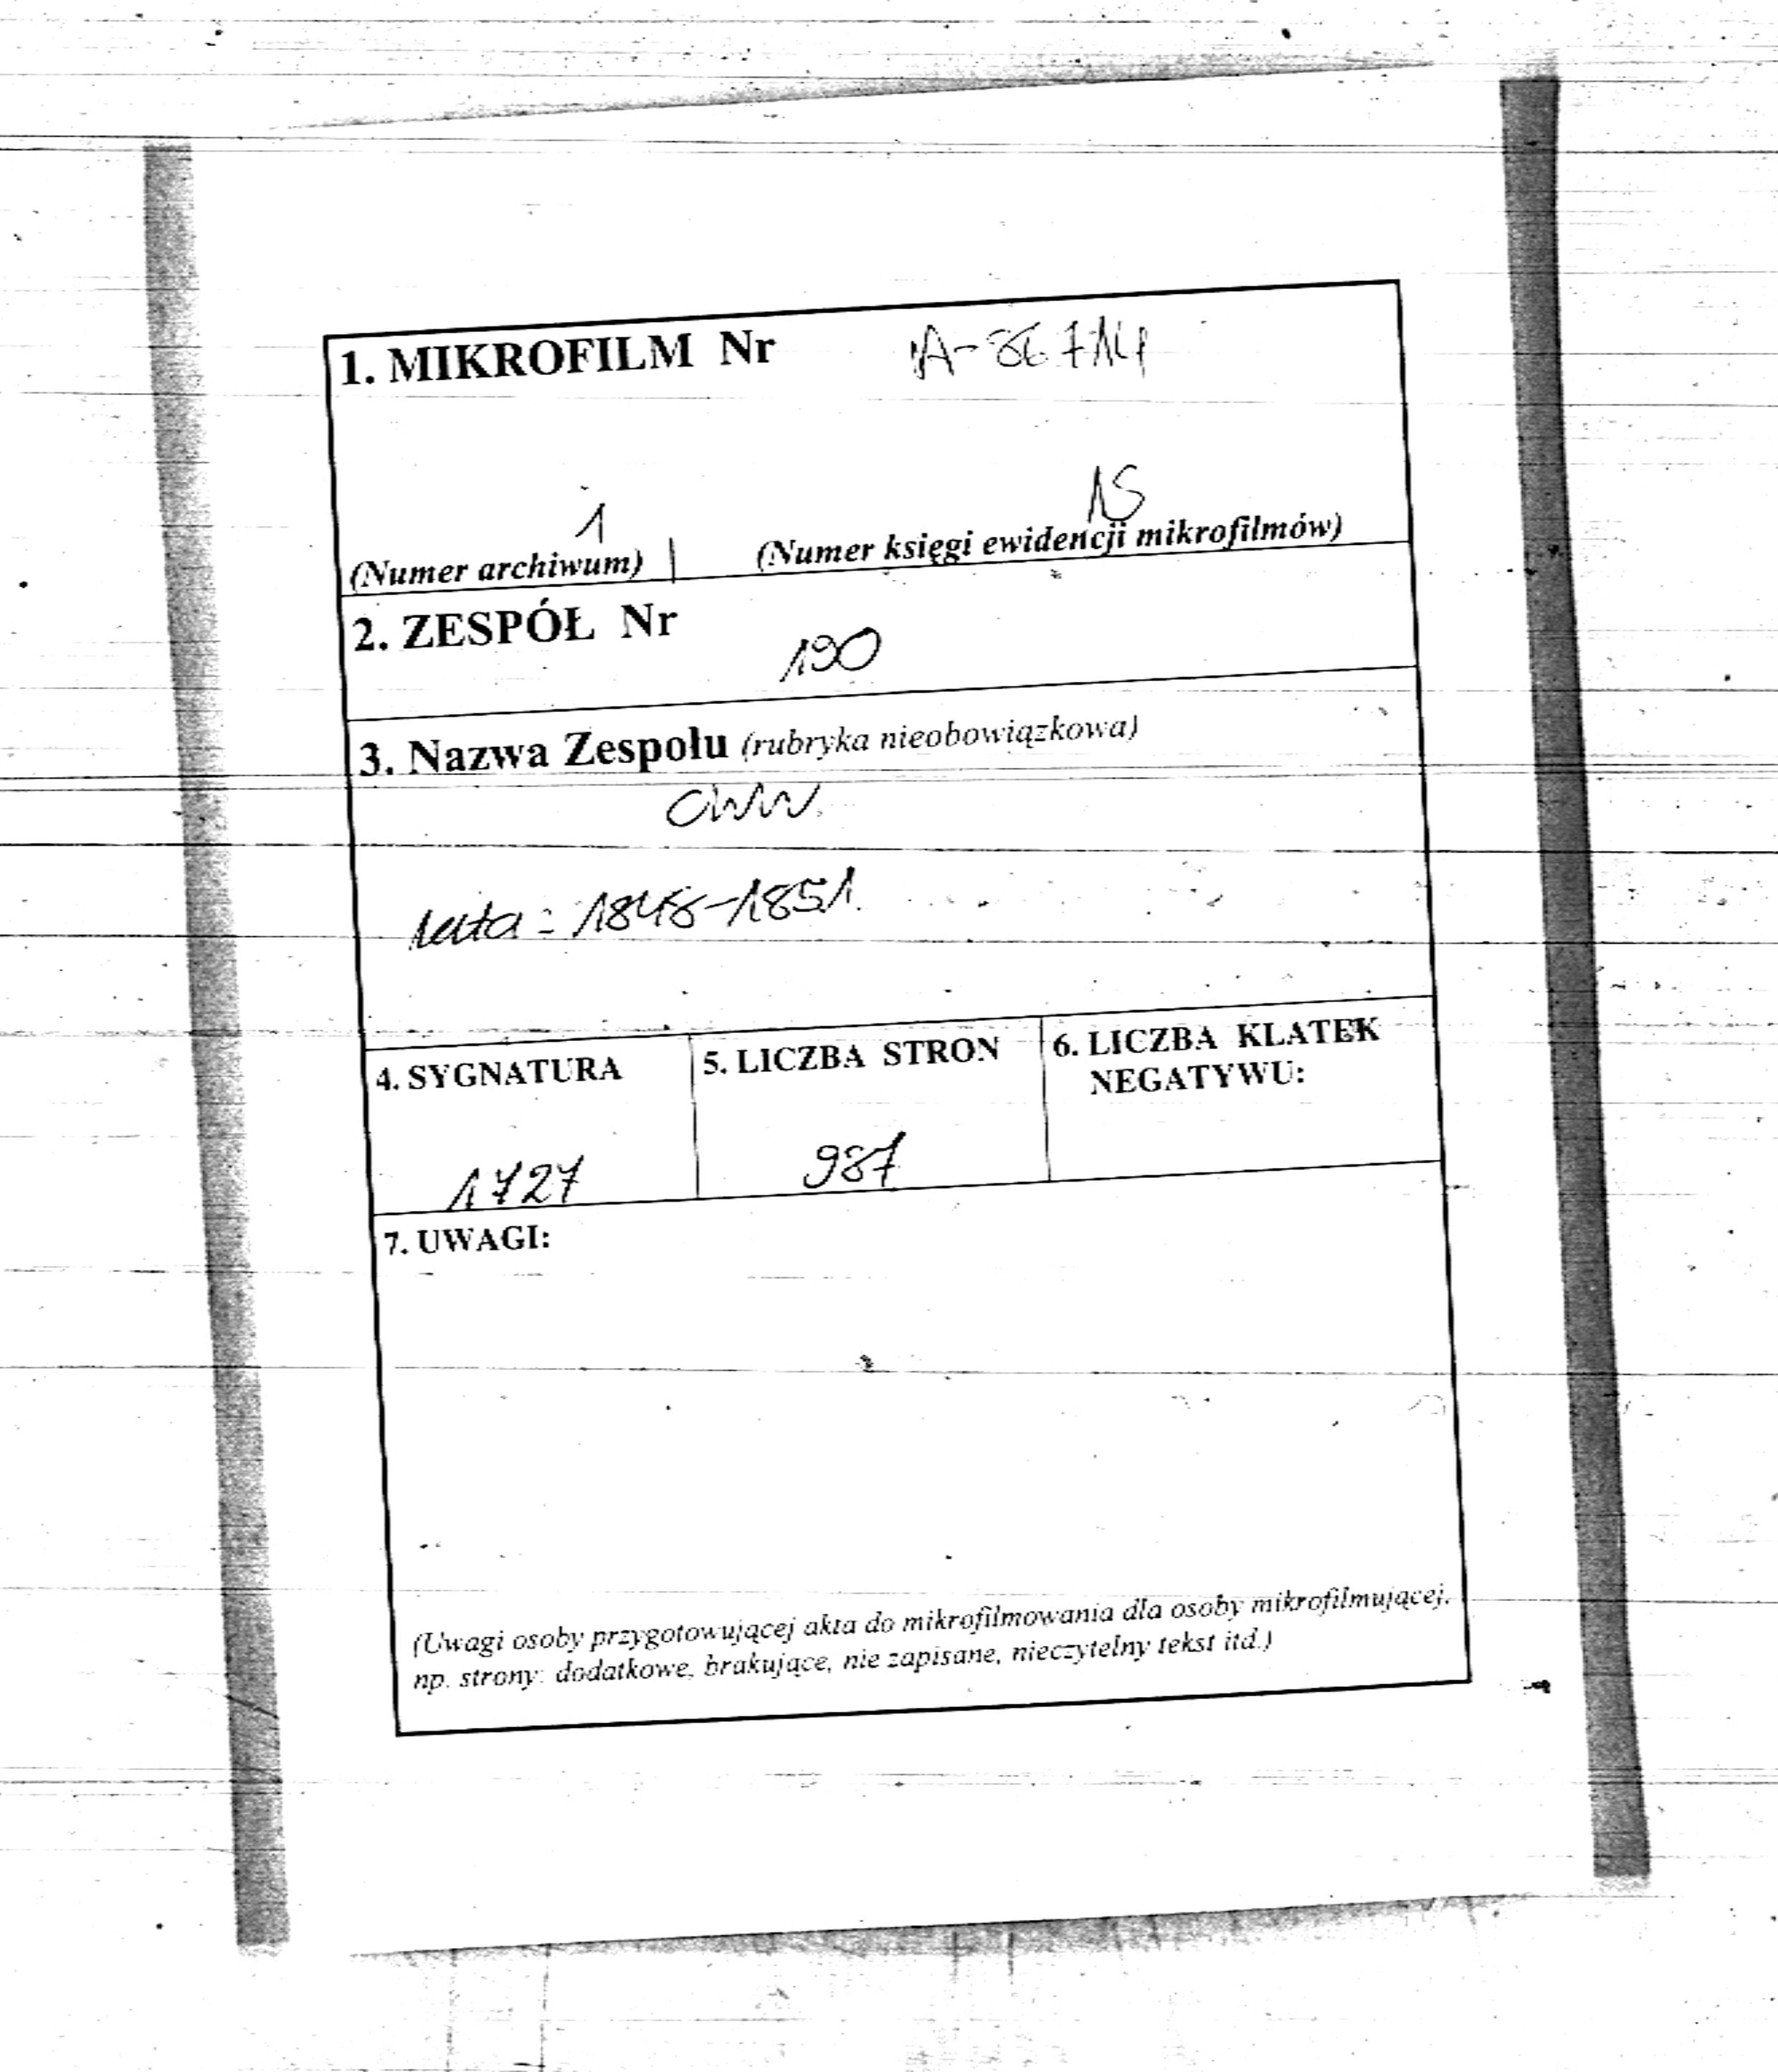 1. MIKROFILM Nr A-86714
1 15
(Numer archiwum) | (Numer księgi ewidencji mikrofilmów)
2. ZESPÓŁ Nr
190
3. Nazwa Zespołu (rubryka nieobowiązkowa)
CWW
lata: 1848-1851.
4. SYGNATURA 5. LICZBA STRON 6. LICZBA KLATEK
NEGATYWU:
1727 987
7. UWAGI:
(Uwagi osoby przygotowującej akta do mikrofilmowania dla osoby mikrofilmującej,
np. strony: dodatkowe, brakujące, nie zapisane, nieczytelny tekst itd.)